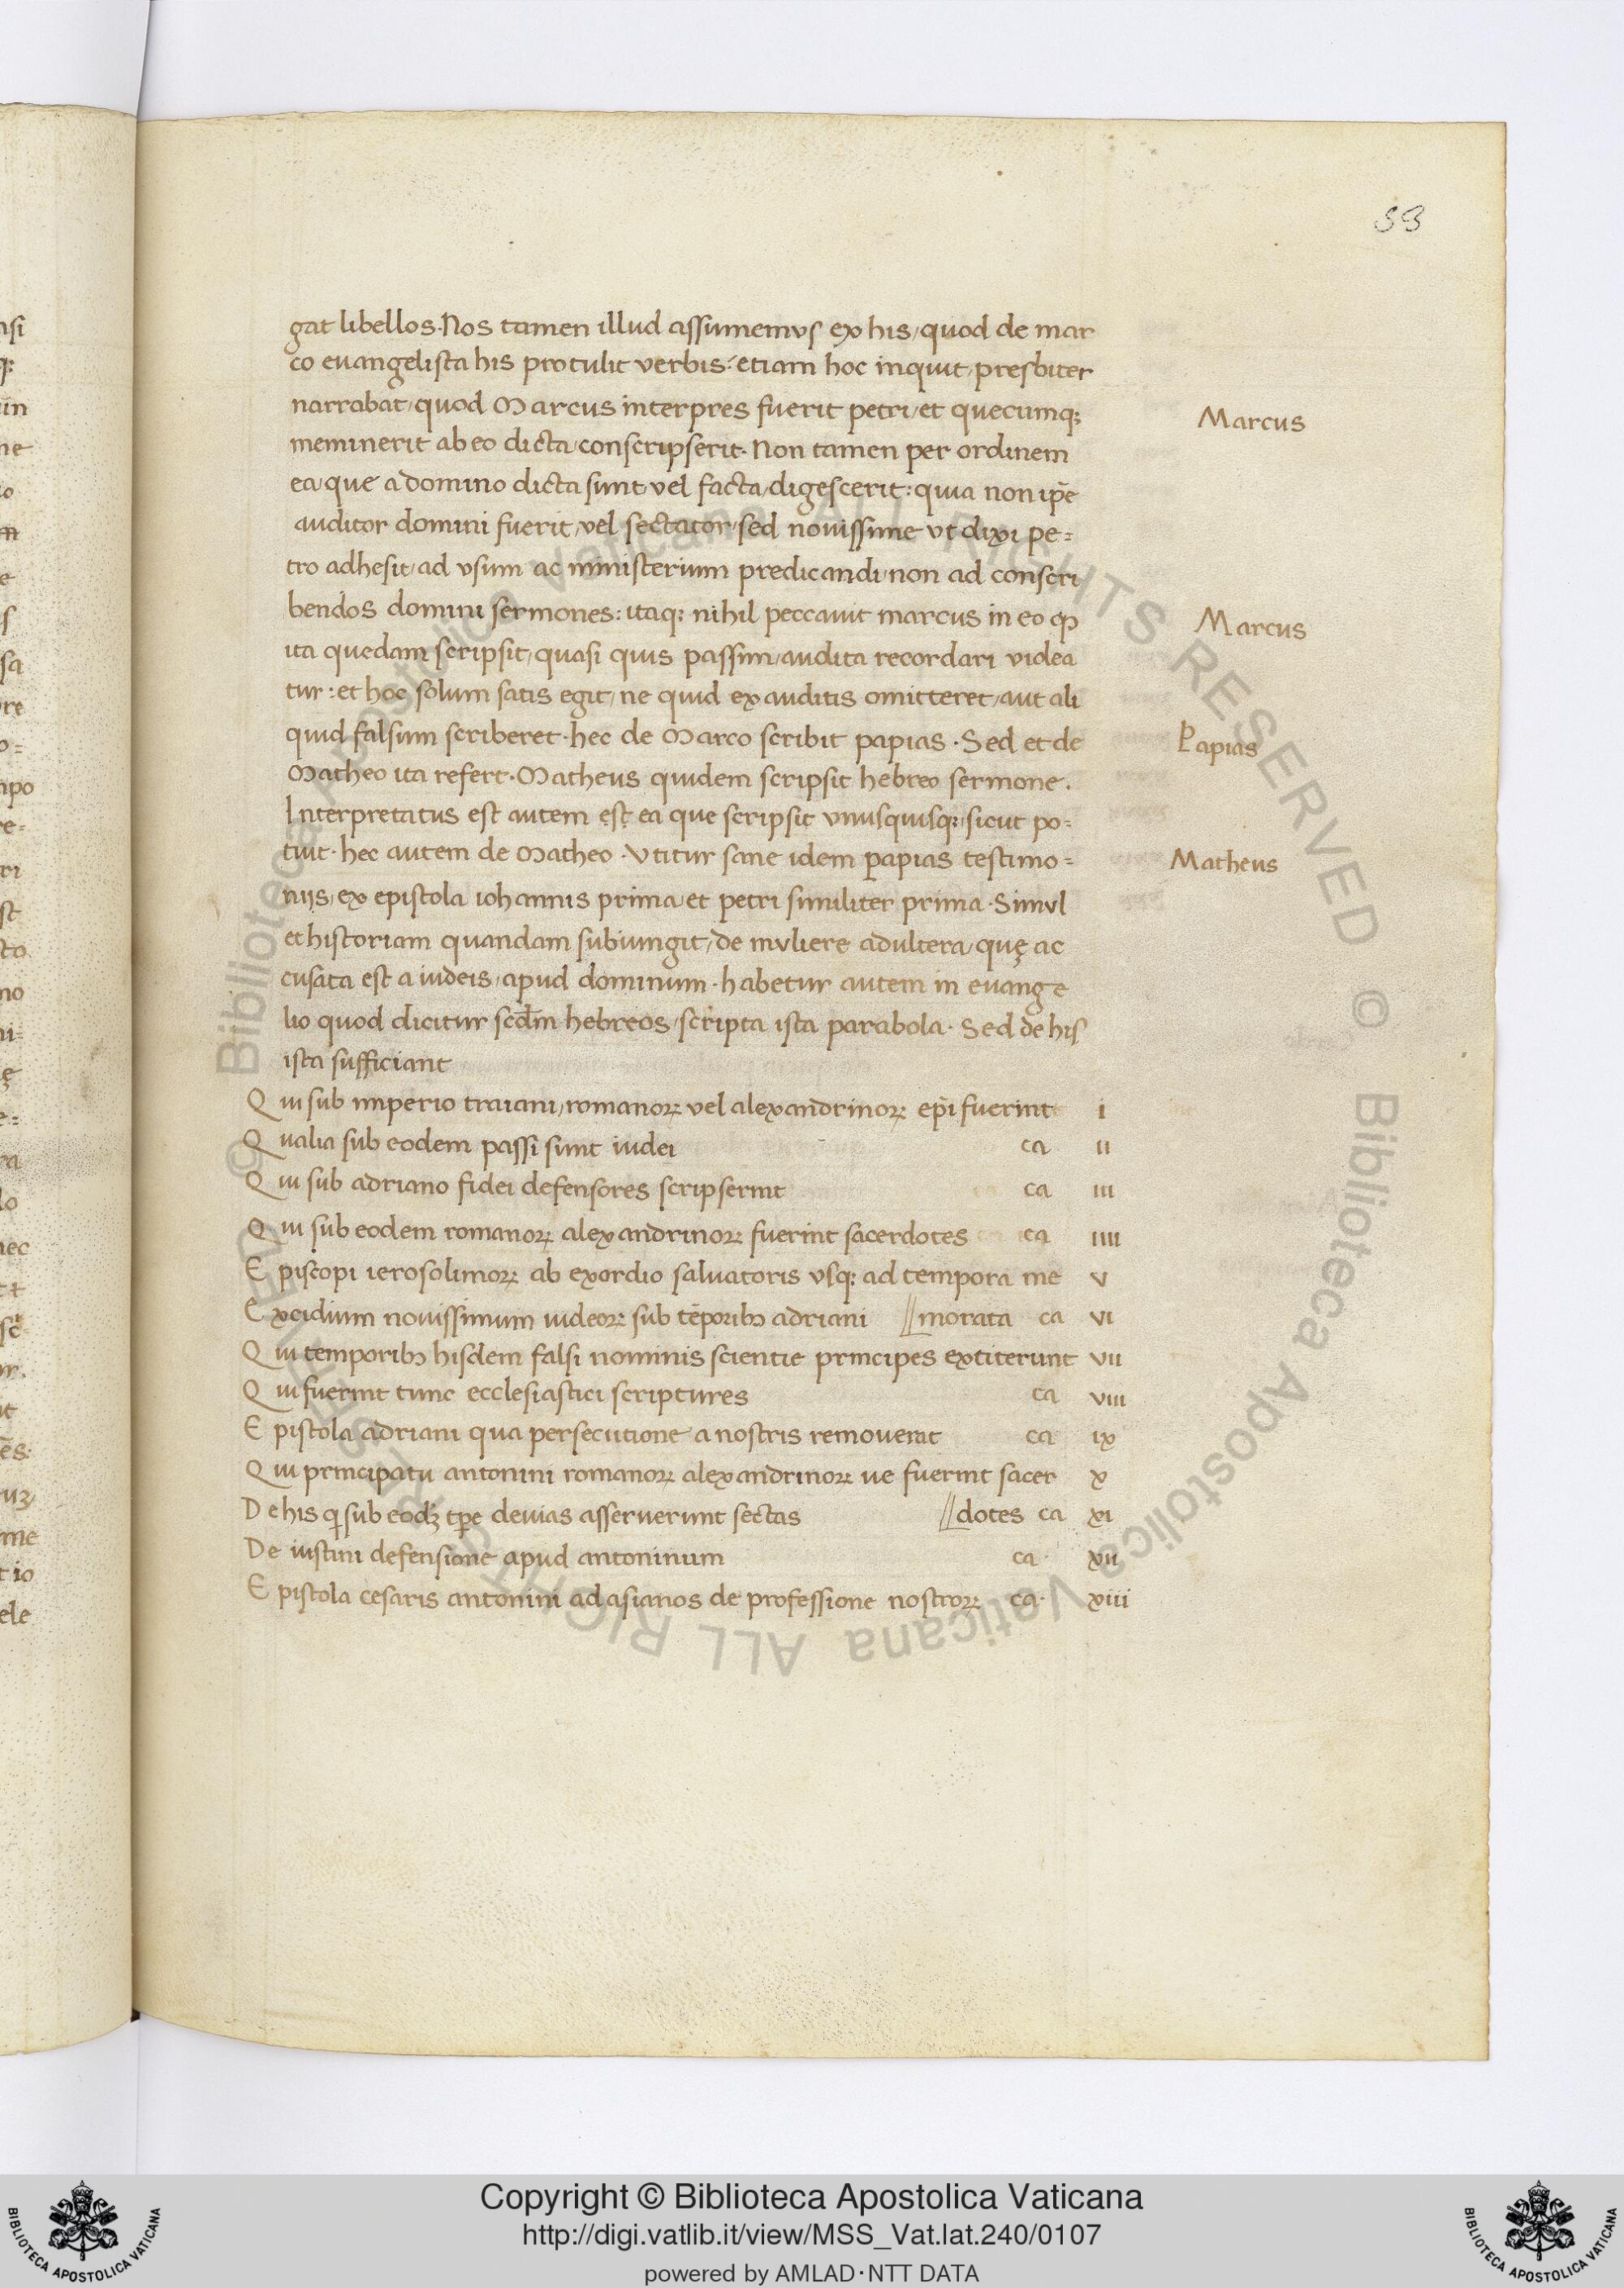 53
gat libellos. Nos tamen illud assumemus ex his, quod de mar
co euangelista his protulit verbis: etiam hoc inquit, presbiter
narrabat, quod Marcus interpres fuerit petri, et quecumq;
Marcus
meminerit ab eo dicta, conscripserit. Non tamen per ordinem
ea, que a domino dicta sunt, vel facta, digescerit: quia non ip̄e
auditor domini fuerit, vel sectator, sed nouissime vt dixi pe=
tro adhesit, ad vsum ac ministerium predicandi, non ad conscri
bendos domini sermones: itaq; nihil peccauit marcus in eo ꝙ
Marcus
ita quedam scripsit, quasi quis passim, audita recordari videa
tur: et hoc solum satis egit, ne quid ex auditis omitteret, aut ali
quid falsum scriberet. hec de Marco scribit papias. Sed et de
Papias
Matheo ita refert. Matheus quidem scripsit hebreo sermone.
Interpretatus est autem est ea que scripsit vnusquisq;, sicut po=
tuit. hec autem de Matheo. Vtitur sane idem papias testimo=
Matheus
nijs, ex epistola iohannis prima, et petri similiter prima. Simul
et historiam quandam subiungit, de muliere adultera, quę ac
cusata est a iudeis, apud dominum. habetur autem in euange
lio quod dicitur scd̄m hebreos, scripta ista parabola. Sed de his
ista sufficiant
Qui sub imperio traiani, romanoꝝ vel alexandrinoꝝ ep̄i fuerint i
Qualia sub eodem passi sunt iudei ca ii
Qui sub adriano fidei defensores scripserint ca iii
Qui sub eodem romanoꝝ alexandrinoꝝ fuerint sacerdotes ca iiii
Episcopi ierosolimoꝝ ab exordio saluatoris vsq; ad tempora me v
Excidium nouissimum iudeoꝝ sub tēporibꝫ adriani //morata ca vi
Qui temporibꝫ hisdem falsi nominis scientie principes extiterunt vii
Qui fuerint tunc ecclesiastici scriptures ca viii
Epistola adriani qua persecutione a nostris remouerat ca ix
Qui principatu antonini romanoꝝ alexandrinoꝝ ue fuerint sacer x
De his qͥ sub eodꝫ tp̄e deuias asseruerunt sectas //dotes ca xi
De iustini defensione apud antoninum ca. xii
Epistola cesaris antonini ad asianos de professione nostroꝝ ca. xiii
Copyright © Biblioteca Apostolica Vaticana
http://digi.vatlib.it/view/MSS_Vat.lat.240/0107
powered by AMLAD·NTT DATA